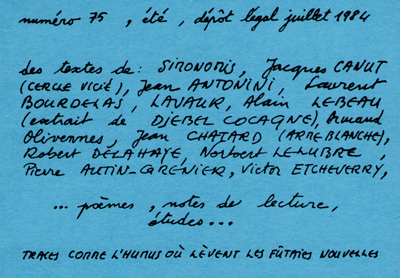 numéro 75 , été , dépôt légal juillet 1984
des textes de : SIMONOMIS, Jacques CANUT
(CERCLE VICIÉ), Jean ANTONINI, Laurent
BOURDELAS, LAVAUR, Alain LEBEAU
(extrait de DJEBEL COCAGNE), Armand
Olivennes, Jean CHATARD (ARREBLANCHE),
Robert DELAHAYE, Norbert LELUBRE ,
Pierre AUTIN-GRENIER, Victor ETCHEVERRY,
... poèmes , notes de lecture,
études...
TRACES COMME L'HUMUS OÙ LÈVENT LES FÛTAIES NOUVELLES